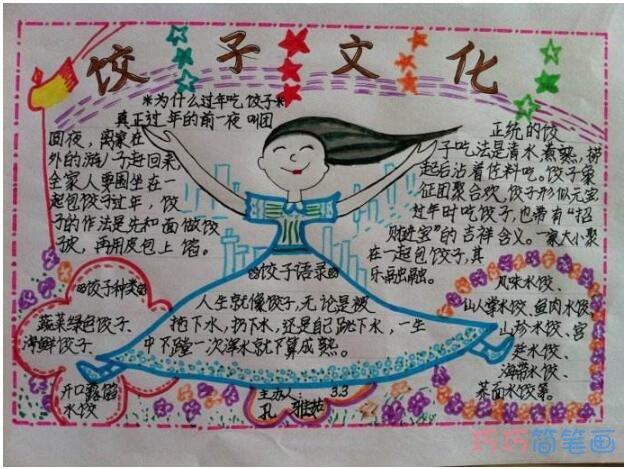 饺子文化
*为什么过年吃饺子*
真正过年的前一夜叫团
圆夜，离家在
外的游子赶回来，
全家人要围坐在一
起包饺子过年，饺
子的作法是先和面做饺
子皮，再用皮包上馅。
正统的饺
子吃法是清水煮熟，捞
起后沾着佐料吃。饺子象
征团聚合欢，饺子形似元宝
过年时吃饺子，也带有“招
财进宝”的吉祥含义。一家大小聚
在一起包饺子，其
乐融融。
饺子语录
人生就像饺子，无论是被
拖下水，扔下水，还是自己跳下水，一生
中不蹚一次浑水就不算成熟。
饺子种类
蔬菜绿色饺子、
海鲜饺子
开口露馅
水饺
风味水饺、
仙人掌水饺、鱼肉水饺、
山珍水饺、宫
廷水饺、
海带水饺、
菜面水饺等。
主办人： 3.3
孔
巧巧简笔画